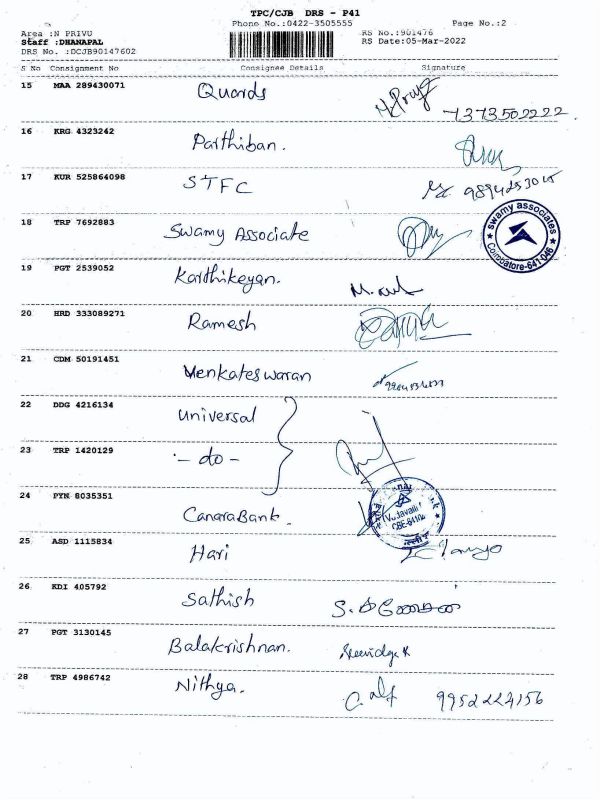 TPC/CJB DRS - P41
Phone No.:0422-3505555 Page No.:2
Area :N PRIVU RS No.:901476
Staff :DHANAPAL RS Date:05-Mar-2022
DRS No. :DCJB90147602
S No Consignment No Consignee Details Signature
15 MAA 289430071 Quords
7373502222.
16 KRG 4323242 Parthiban.
17 KUR 525864098 STFC
18 TRP 7692883 Swamy Associate
swamy associates
Coimbatore-641 046
19 PGT 2539052 Karthikeyan.
20 HRD 333089271 Ramesh
21 CDM 50191451 Venkateswaran
22 DDG 4216134 Universal
23 TRP 1420129 - do -
24 PYN 8035351 Canara Bank.
25 ASD 1115834 Hari
26 KDI 405792 Sathish
27 PGT 3130145 Balakrishnan.
28 TRP 4986742 Nithya.
9952224156